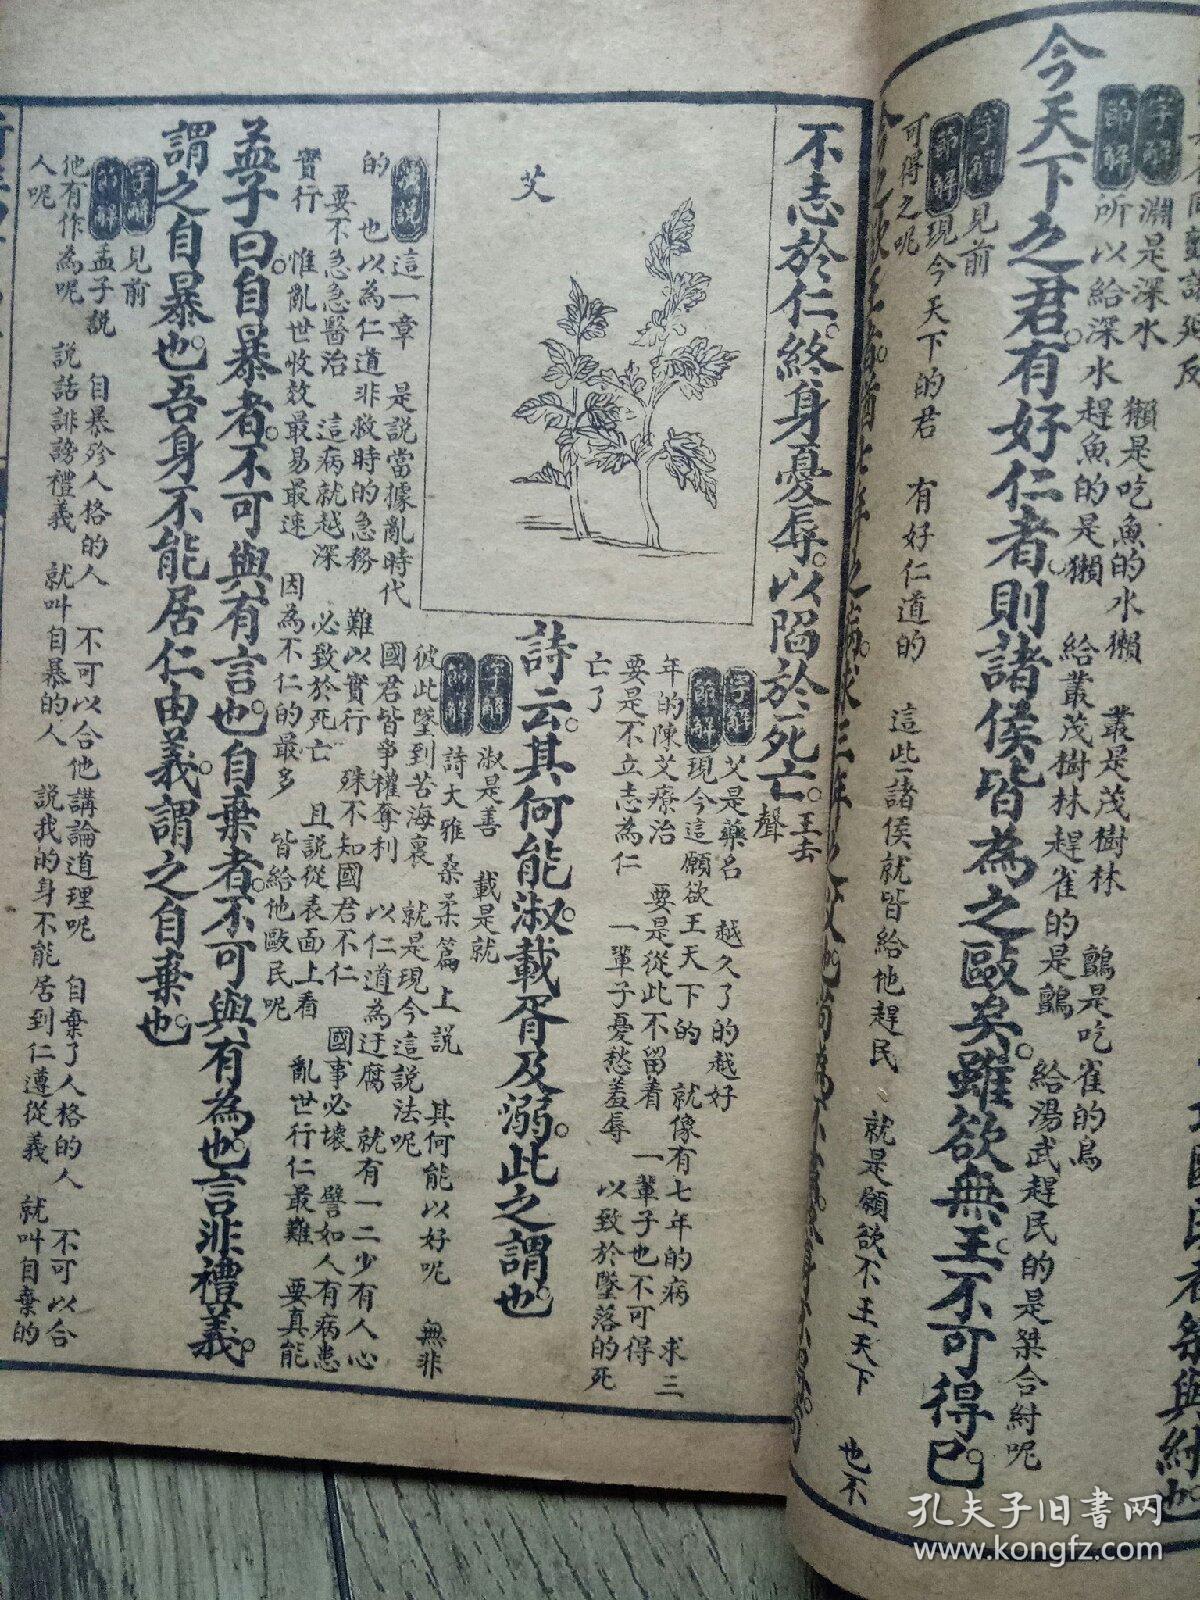 今天下之君。有好仁者。則諸侯皆為之敺矣。雖欲無王。不可得已。
字解
淵是深水 獺是吃魚的水獺 叢是茂樹林 鸇是吃雀的鳥
節解
所以給深水趕魚的是獺 給叢茂樹林趕雀的是鸇 給湯武趕民的是桀合紂呢
字解
見前
節解
現今天下的君 有好仁道的 這些諸侯就皆給他趕民 就是願欲不王天下 也不
可得之呢
不志於仁。終身憂辱。以陷於死亡。王去
聲
字解
艾是藥名 越久了的越好
節解
現今這願欲王天下的 就像有七年的病 求三
年的陳艾療治 要是從此不留着 一輩子也不可得
要是不立志為仁 一輩子憂愁羞辱 以致於墜落的死
亡了
艾
詩云。其何能淑。載胥及溺。此之謂也。
字解
淑是善 載是就
節解
詩大雅桑柔篇上說 其何能以好呢 無非
彼此墜到苦海裏 就是現今這說法呢
演說
這一章 是說當據亂時代 國君皆爭權奪利 以仁道為迂腐 就有一二少有人心
的 也以為仁道非救時的急務 難以實行 殊不知國君不仁 國事必壞 譬如人有病患
要不急急醫治 這病就越深 必致於死亡 且說從表面上看 亂世行仁最難 要真能
實行 惟亂世收效最易最速 因為不仁的最多 皆給他敺民呢
孟子曰。自暴者。不可與有言也。自棄者。不可與有為也。言非禮義。
謂之自暴也。吾身不能居仁由義。謂之自棄也。
字解
見前
節解
孟子說 自暴殄人格的人 不可以合他講論道理呢 自棄了人格的人 不可以合
他有作為呢 說話誹謗禮義 就叫自暴的人 說我的身不能居到仁遵從義 就叫自棄的
人呢
孔夫子旧书网
www.kongfz.com